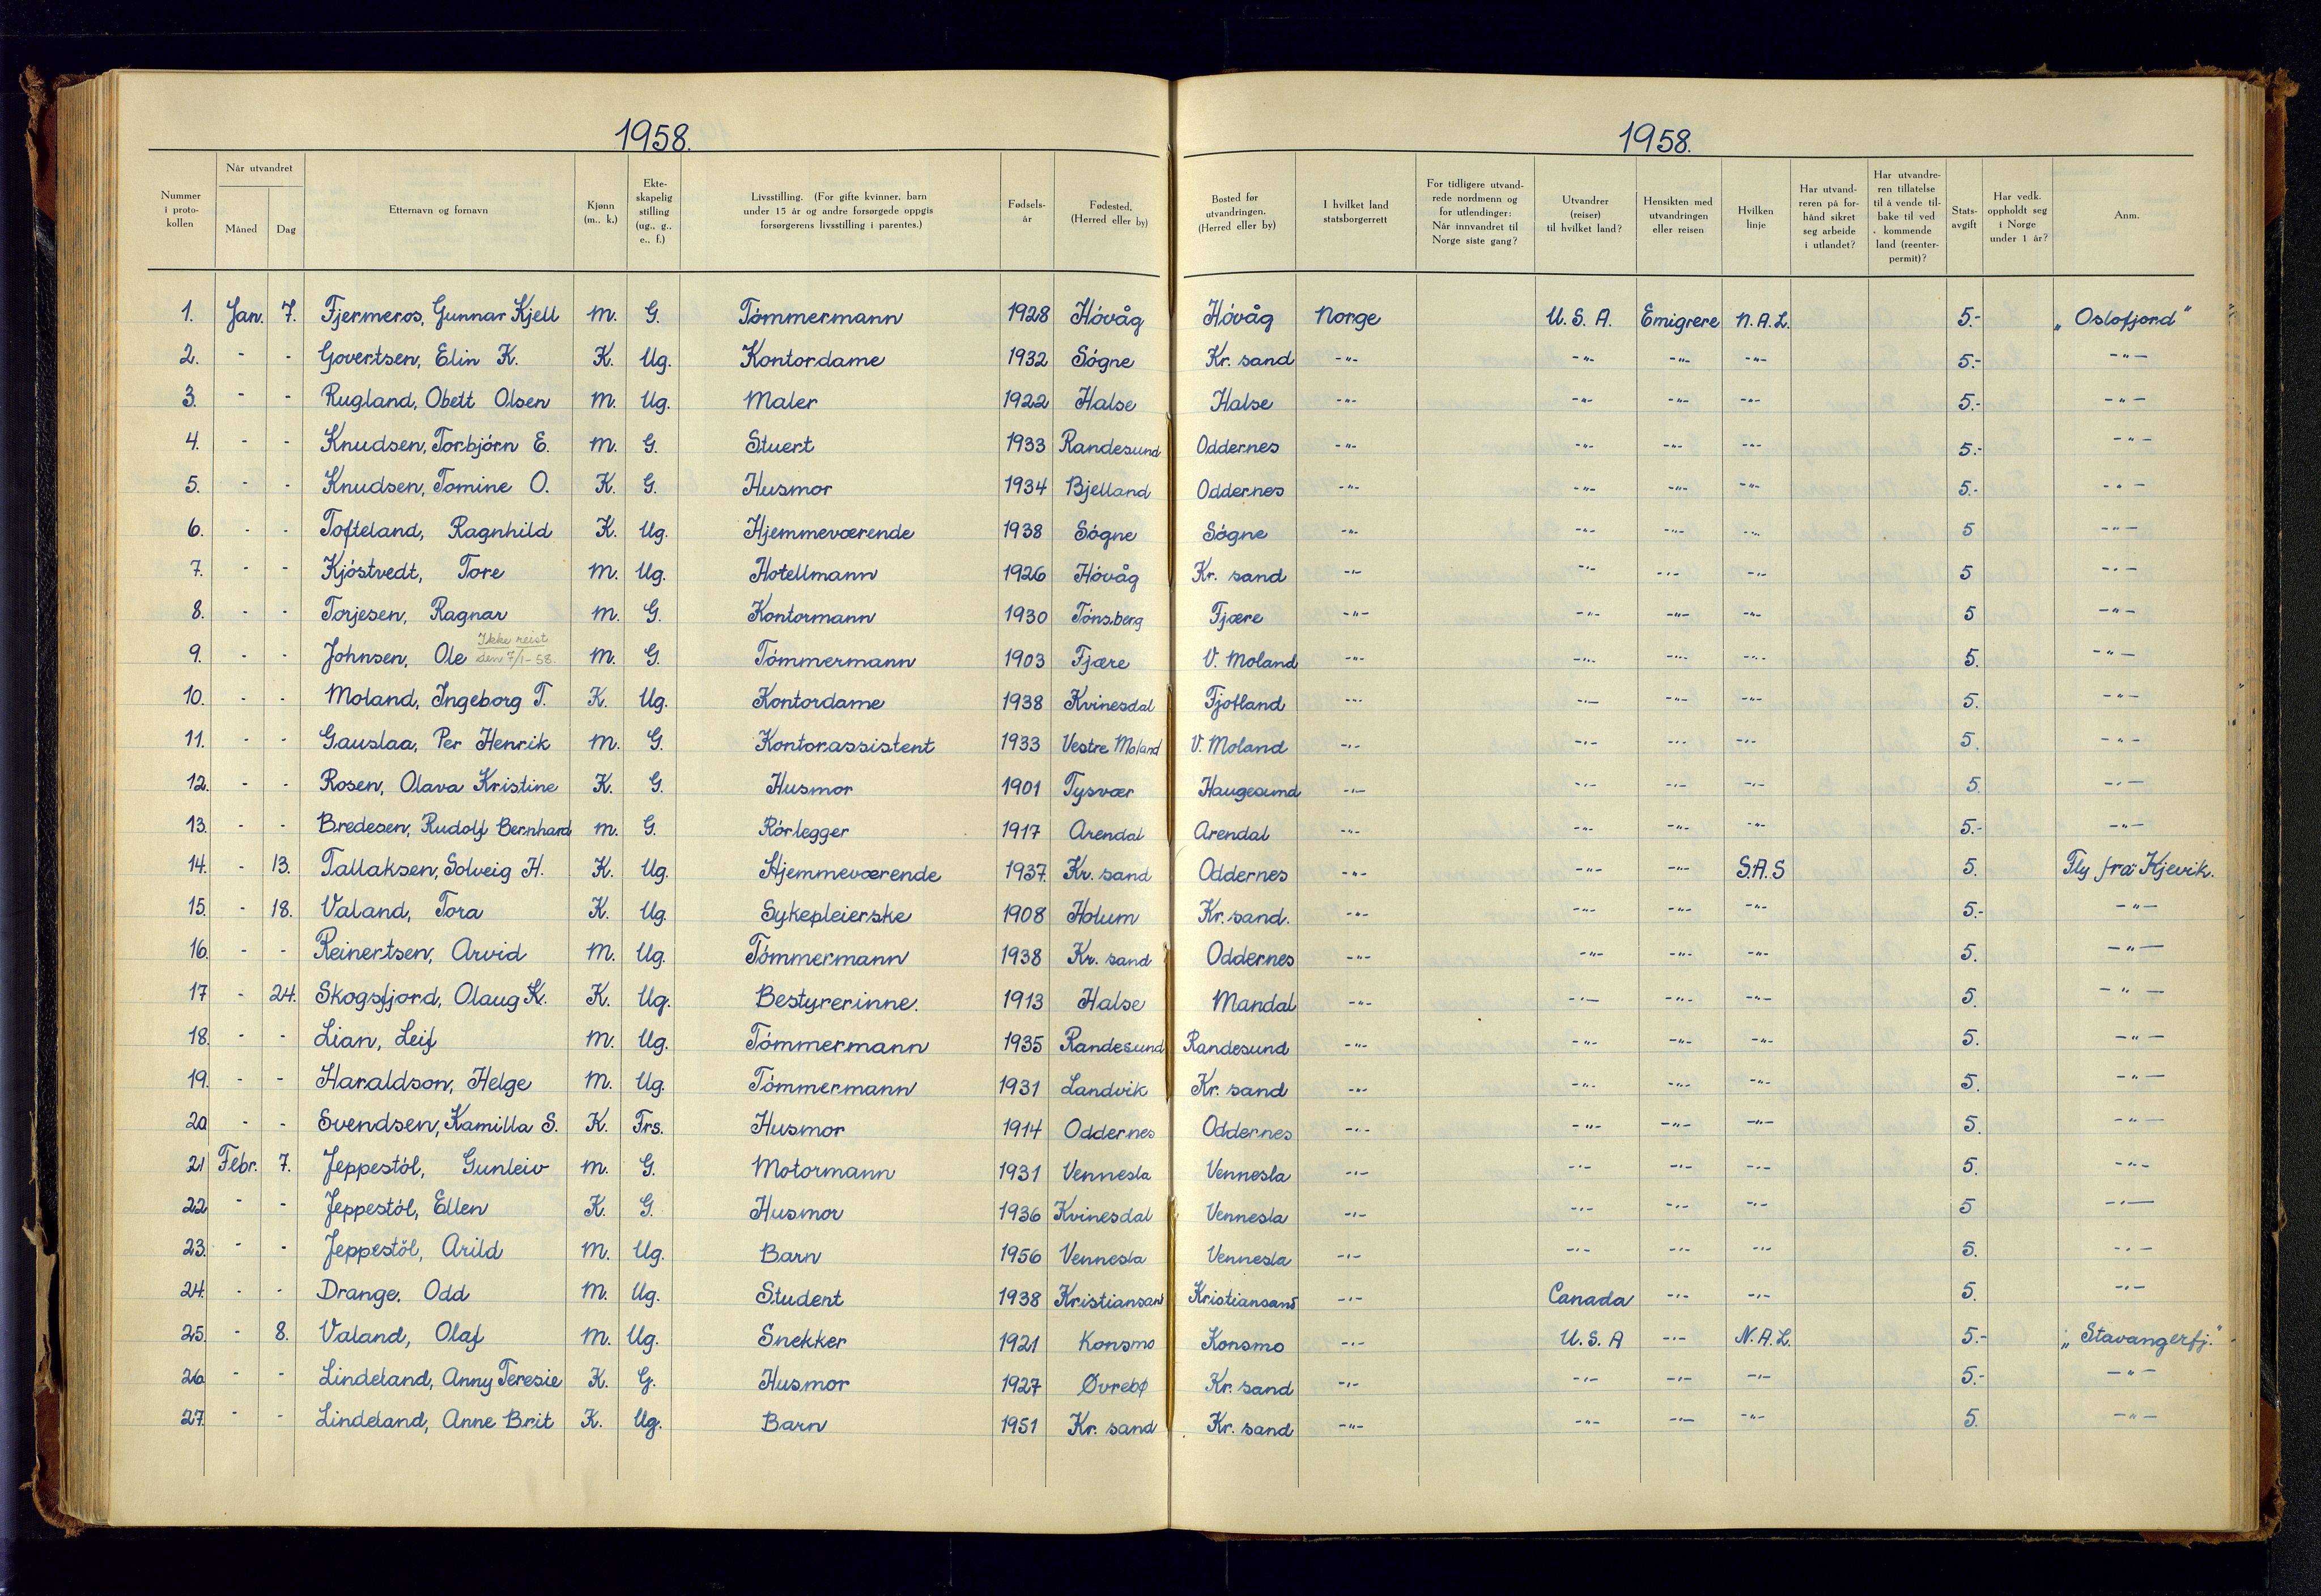 1958.
1958.
Nummer i proto-kollen | Når utvandret Måned | Dag | Etternavn og fornavn | Kjønn (m., k.) | Ekte-skapelig stilling (ug., g., e., f.) | Livsstilling. (For gifte kvinner, barn under 15 år og andre forsørgede oppgis forsørgerens livsstilling i parentes.) | Fødsels-år | Fødested. (Herred eller by) | Bosted før utvandringen. (Herred eller by) | I hvilket land statsborgerrett | For tidligere utvand-rede nordmenn og for utlendinger: Når innvandret til Norge siste gang? | Utvandrer (reiser) til hvilket land? | Hensikten med utvandringen eller reisen | Hvilken linje | Har utvand-reren på for-hånd sikret seg arbeide i utlandet? | Har utvandre-ren tillatelse til å vende til-bake til ved kommende land (reenter-permit)? | Stats-avgift | Har vedk. oppholdt seg i Norge under 1 år? | Anm.
1. Jan. 7. Fjermeros, Gunnar Kjell M. G. Tómmermann 1928 Hóvåg Hóvåg Norge U.S.A. Emigrere N.A.L. 5.- „Oslofjord"
2. - - Govertsen, Elin K. K. Ug. Kontordame 1932 Sógne Kr. sand -"- -"- -"- -"- 5.- -"-
3. - - Rugland, Obett Olsen M. Ug. Maler 1922 Halse Halse -"- -"- -"- -"- 5.- -"-
4. - - Knudsen, Torbjórn E. M. G. Stuert 1933 Randesund Oddernes -"- -"- -"- -"- 5.- -"-
5. - - Knudsen, Tomine O. K. G. Husmor 1934 Bjelland Oddernes -"- -"- -"- -"- 5.- -"-
6. - - Tofteland, Ragnhild K. Ug. Hjemmeværende 1938 Sógne Sógne -"- -"- -"- -"- 5 -"-
7. - - Kjóstvedt, Tore M. Ug. Hotellmann 1926 Hóvåg Kr. sand -"- -"- -"- -"- 5 -"-
8. - - Torjesen, Ragnar M. G. Kontormann 1930 Tónsberg Fjære -"- -"- -"- -"- 5 -"-
9. - - Johnsen, Ole Ikke reist den 7/1-58. M. G. Tómmermann 1903 Fjære V. Moland -"- -"- -"- -"- 5. -"-
10. - - Moland, Ingeborg T. K. Ug. Kontordame 1938 Kvinesdal Fjotland -"- -"- -"- -"- 5. -"-
11. - - Gauslaa, Per Henrik M. G. Kontorassistent 1933 Vestre Moland V. Moland -"- -"- -"- -"- 5. -"-
12. - - Rosen, Olava Kristine K. G. Husmor 1901 Tysvær Haugesund -"- -"- -"- -"- 5. -"-
13. - - Bredesen, Rudolf Bernhard M. G. Rórlegger 1917 Arendal Arendal -"- -"- -"- -"- 5.- -"-
14. - 13. Tallaksen, Solveig H. K. Ug. Hjemmeværende 1937. Kr. sand Oddernes -"- -"- -"- S.A.S 5. Fly frå Kjevik.
15. - 18. Valand, Tora K. Ug. Sykepleierske 1908 Holum Kr. sand. -"- -"- -"- -"- 5.- -"-
16. - - Reinertsen, Arvid M. Ug. Tómmermann 1938 Kr. sand Oddernes -"- -"- -"- -"- 5. -"-
17 - 24. Skogsfjord, Olaug K. K. Ug. Bestyrerinne. 1913 Halse Mandal -"- -"- -"- -"- 5. -"-
18. - - Lian, Leif M. Ug. Tómmermann 1935 Randesund Randesund -"- -"- -"- -"- 5. -"-
19. - - Haraldson, Helge M. Ug. Tómmermann 1931 Landvik Kr. sand -"- -"- -"- -"- 5. -"-
20 - - Svendsen, Kamilla S. K. Frs. Husmor 1914 Oddernes Oddernes -"- -"- -"- -"- 5. -"-
21 Febr. 7. Jeppestól, Gunleiv M. G. Motormann 1931 Vennesla Vennesla -"- -"- -"- -"- 5. -"-
22 - - Jeppestól, Ellen K. G. Husmor 1936 Kvinesdal Vennesla -"- -"- -"- -"- 5 -"-
23. - - Jeppestól, Arild M. Ug. Barn 1956 Vennesla Vennesla -"- -"- -"- -"- 5. -"-
24. - - Drange, Odd M. Ug. Student 1938 Kristiansand Kristiansand -"- Canada -"- -"- 5. -"-
25. - 8. Valand, Olaf M. Ug. Snekker 1921 Konsmo Konsmo -"- U.S.A -"- N.A.L. 5.- „Stavangerfj."
26 - - Lindeland, Anny Teresie K. G. Husmor 1927 Øvrebø Kr. sand -"- -"- -"- -"- 5.- -"-
27. - - Lindeland, Anne Brit K. Ug. Barn 1951 Kr. sand Kr. sand -"- -"- -"- -"- 5. -"-